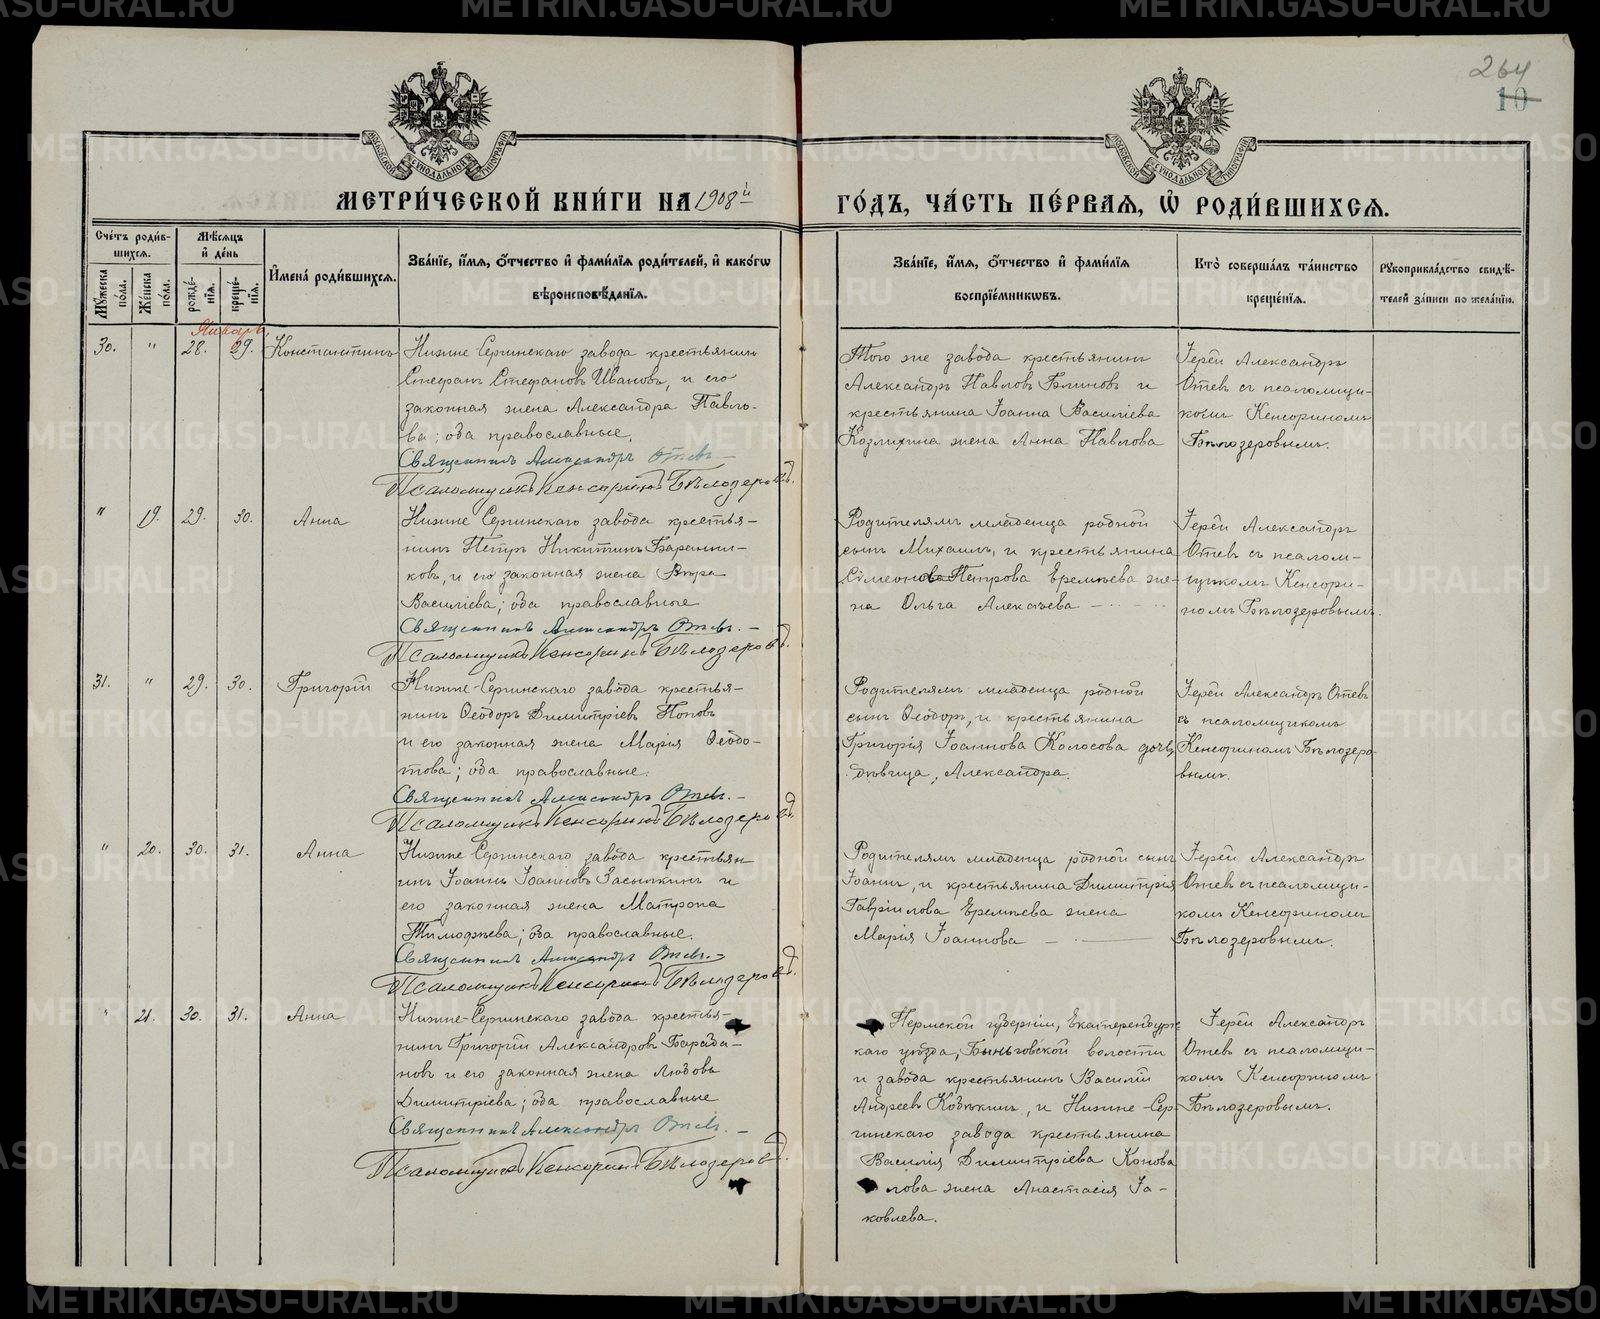 264
10
МЕТРИ́ЧЕСКОЙ КНИ́ГИ НА 1908 й
ГО́ДЪ, ЧА́СТЬ ПЕ́РВАЯ, Ѡ РОДИ́ВШИХСЯ.
Сче́тъ роди́в-
шихся.
Мꙋ́жеска по́ла.
Же́нска по́ла.
Мѣ́сяцъ
и́ де́нь
рожде́-
нїя.
креще́-
нїя.
И҆мена̀ роди́вшихся.
Зва́нїе, и҆́мя, ѻ҆́тчество и҆ фами́лїя роди́телей, и҆ како́гѡ
вѣроисповѣ́данїя.
Зва́нїе, и҆́мя, ѻ҆́тчество и҆ фами́лїя
воспрїе́мниковъ.
Кто̀ соверша́лъ та́инство
креще́нїя.
Рꙋкоприкла́дство свидѣ́-
телей за́писи по жела́нїю.
Январь.
30. " 28. 29. Константинъ
Нижне Сергинскаго завода крестьянинъ
Стефанъ Стефановъ Ивановъ, и его
законная жена Александра Павло-
ва; оба православные.
Священникъ Александръ Отевъ.
Псаломщикъ Кенсоринъ Бѣлозеровъ.
Того же завода крестьянинъ
Александръ Павловъ Блиновъ и
крестьянина Іоанна Василіева
Козлихина жена Анна Павлова
Іерей Александръ
Отевъ съ псаломщи-
комъ Кенсориномъ
Бѣлозеровымъ.
" 19. 29. 30. Анна
Нижне Сергинскаго завода крестья-
нинъ Петръ Никитинъ Баранни-
ковъ, и его законная жена Вѣра
Василіева; оба православные
Священникъ Александръ Отевъ. -
Псаломщикъ Кенсоринъ Бѣлозеровъ.
Родителямъ младенца родной
сынъ Михаилъ, и крестьянина
Симеонова Петрова Еремѣева же-
на Ольга Алексѣева
Іерей Александръ
Отевъ съ псалом-
щикомъ Кенсори-
номъ Бѣлозеровымъ.
31. " 29. 30. Григорій
Нижне-Сергинскаго завода крестья-
нинъ Ѳеодоръ Димитріевъ Поповъ
и его законная жена Марія Ѳеодо-
това; оба православные.
Священникъ Александръ Отевъ. -
Псаломщикъ Кенсоринъ Бѣлозеровъ.
Родителямъ младенца родной
сынъ Ѳеодоръ, и крестьянина
Григорія Іоаннова Колосова дочь,
дѣвица, Александра.
Іерей Александръ Отевъ
съ псаломщикомъ
Кенсориномъ Бѣлозеро-
вымъ.
" 20. 30. 31. Анна
Нижне Сергинскаго завода крестьян
инъ Іоаннъ Іоанновъ Засыпкинъ и
его законная жена Матрона
Тимофѣева; оба православные.
Священникъ Александръ Отевъ. -
Псаломщикъ Кенсоринъ Бѣлозеровъ.
Родителямъ младенца родной сынъ
Іоаннъ, и крестьянина Димитрія
Гавріилова Еремѣева жена
Марія Іоаннова
Іерей Александръ
Отевъ съ псаломщи-
комъ Кенсориномъ
Бѣлозеровымъ.
" 21. 30. 31. Анна
Нижне-Сергинскаго завода крестья-
нинъ Григорій Александровъ Бараба-
новъ и его законная жена Любовь
Димитріева; оба православные
Священникъ Александръ Отевъ. -
Псаломщикъ Кенсоринъ Бѣлозеровъ.
Пермской губерніи, Екатеренбург-
каго уѣзда, Быньговской волости
и завода крестьянинъ Василій
Андреевъ, и Нижне-Сер-
гинскаго завода крестьянина
Василія Димитріева Конова
лова жена Анастасія Іа-
ковлева.
Іерей Александръ
Отевъ съ псаломщи-
комъ Кенсориномъ
Бѣлозеровымъ.
METRIKI.GASO-URAL.RU